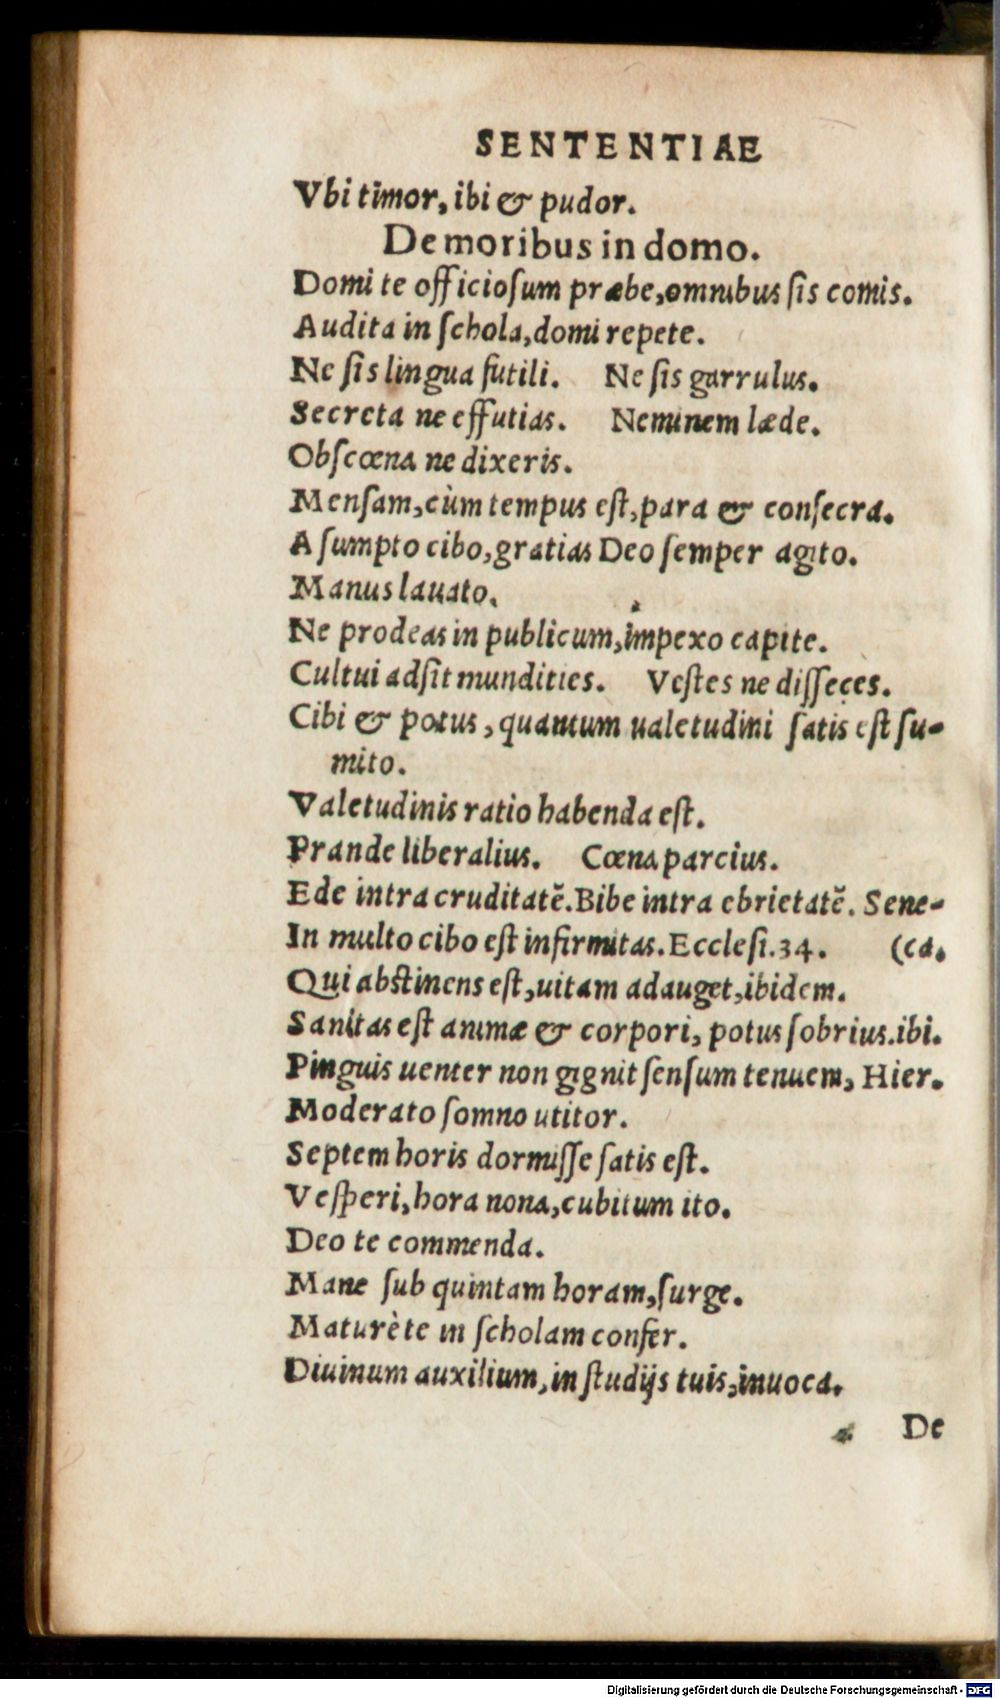 SENTENTIAE
Vbi timor, ibi & pudor.
De moribus in domo.
Domi te officioſum præbe, omnibus ſis comis.
Audita in ſchola, domi repete.
Ne ſis lingua futili. Ne ſis garrulus.
Secreta ne effutias. Neminem læde.
Obſcœna ne dixeris.
Menſam, cùm tempus eſt, para & conſecra.
A ſumpto cibo, gratias Deo ſemper agito.
Manus lauato.
Ne prodeas in publicum, impexo capite.
Cultui adſit mundities. Veſtes ne diſſeces.
Cibi & potus, quantum ualetudini ſatis eſt ſu-
mito.
Valetudinis ratio habenda eſt.
Prande liberalius. Cœna parcius.
Ede intra cruditatẽ. Bibe intra ebrietatẽ. Sene-
In multo cibo eſt infirmitas. Eccleſi. 34. (ca.
Qui abſtinens eſt, uitam adauget, ibidem.
Sanitas eſt animæ & corpori, potus ſobrius. ibi.
Pinguis uenter non gignit ſenſum tenuem, Hier.
Moderato ſomno utitor.
Septem horis dormiſſe ſatis eſt.
Veſperi, hora nona, cubitum ito.
Deo te commenda.
Mane ſub quintam horam, ſurge.
Maturè te in ſcholam confer.
Diuinum auxilium, in ſtudijs tuis, inuoca.
De
Digitalisierung gefördert durch die Deutsche Forschungsgemeinschaft - DFG